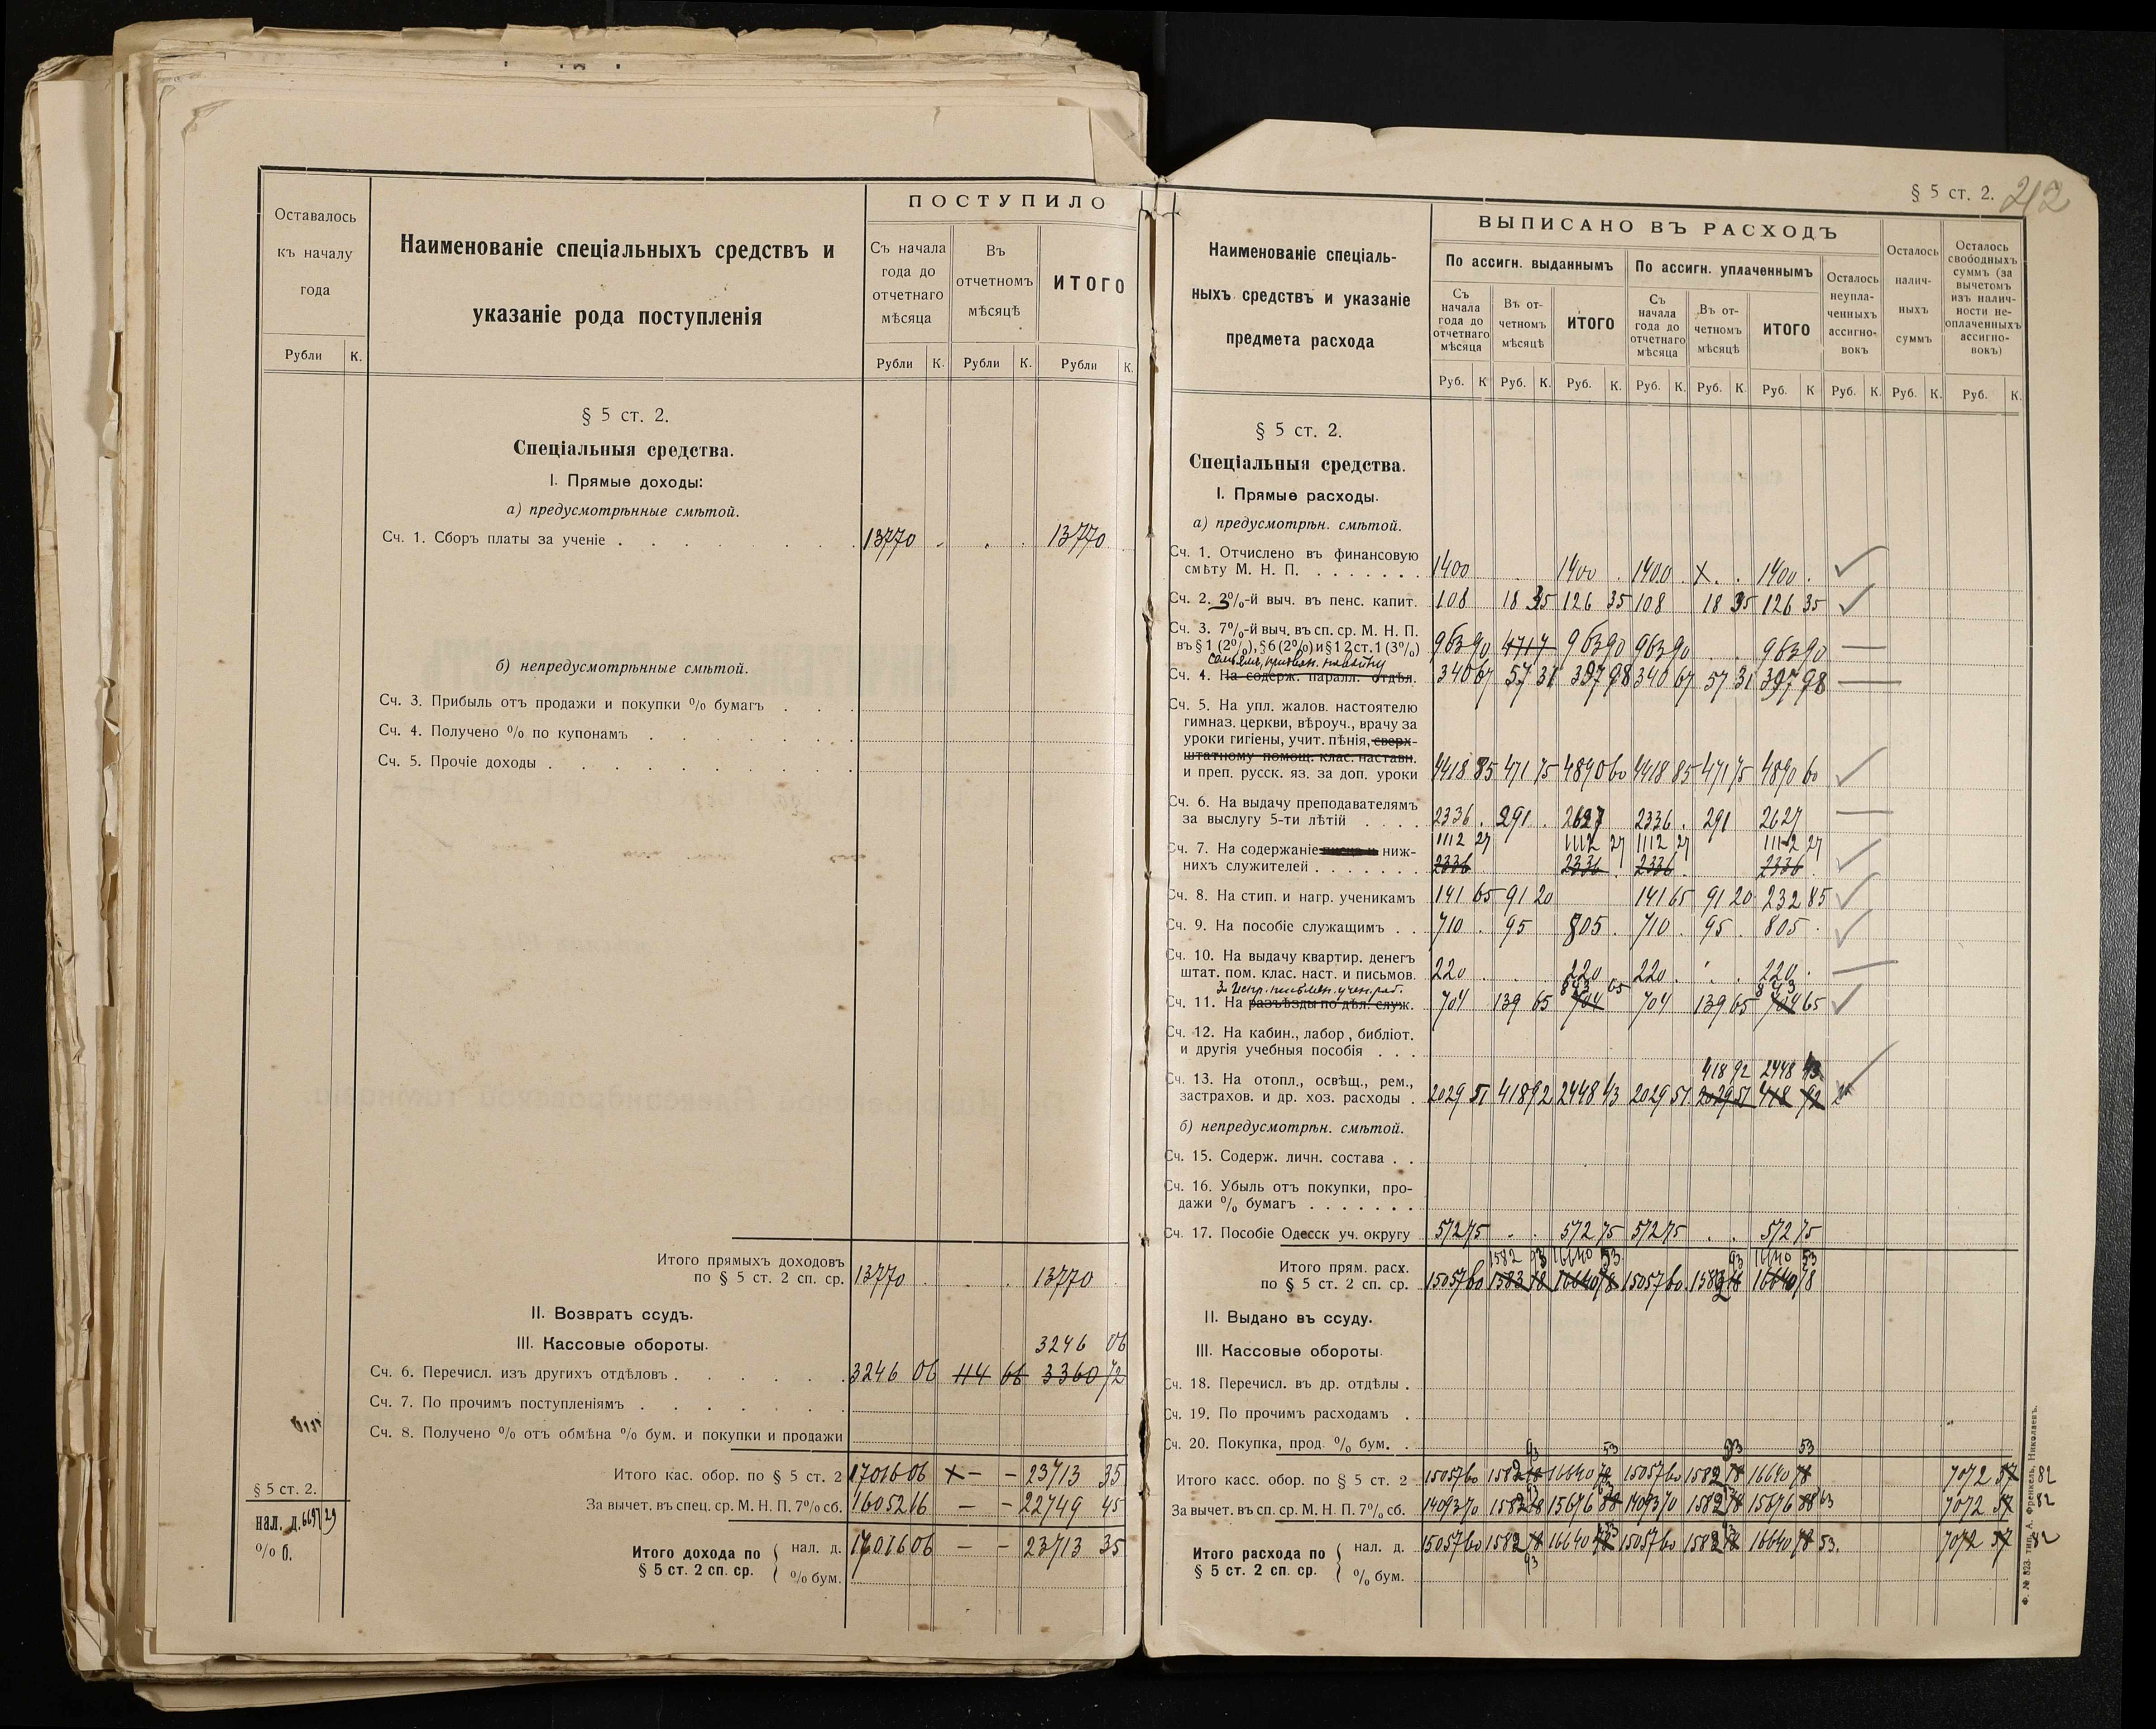 Оставалось
къ началу
года
Рубли К.
Наименованіе спеціальныхъ средствъ и
указаніе рода поступленія
ПОСТУПИЛО
Съ начала
года до
отчетнаго
мѣсяца
Въ
отчетномъ
мѣсяцѣ
ИТОГО
Рубли К. Рубли К. Рубли К.
§ 5 ст. 2.
Спеціальныя средства.
I. Прямые доходы:
а) предусмотрѣнные смѣтой.
Сч. 1. Сборъ платы за ученіе . 13770 13770
б) непредусмотрѣнные смѣтой.
Сч. 3. Прибыль отъ продажи и покупки % бумагъ
Сч. 4. Получено % по купонамъ
Сч. 5. Прочіе доходы
Итого прямыхъ доходовъ
по § 5 ст. 2 сп. ср. 13770 13770
II. Возвратъ ссудъ.
III. Кассовые обороты.
3246 06
Сч. 6. Перечисл. изъ другихъ отдѣловъ 3246 06 114 66 3360 72
Сч. 7. По прочимъ поступленіямъ
Сч. 8. Получено % отъ обмѣна % бум. и покупки и продажи
Итого кас. обор. по § 5 ст. 2 17016 06 × — — 23713 35
За вычет. въ спец. ср. М. Н. П. 7% сб. 16052 16 — — 22749 45
Итого дохода по
§ 5 ст. 2 сп. ср.
нал. д. 17016 06 — — 23713 35
% бум.
§ 5 ст. 2.
нал. д. 6697 29
% б.
§ 5 ст. 2. 212
Наименованіе спеціаль-
ныхъ средствъ и указаніе
предмета расхода
ВЫПИСАНО ВЪ РАСХОДЪ
По ассигн. выданнымъ
По ассигн. уплаченнымъ
Съ
начала
года до
отчетнаго
мѣсяца
Въ от-
четномъ
мѣсяцѣ
ИТОГО
Съ
начала
года до
отчетнаго
мѣсяца
Въ от-
четномъ
мѣсяцѣ
ИТОГО
Осталось
неупла-
ченныхъ
ассигно-
вокъ
Осталось
налич-
ныхъ
суммъ
Осталось
свободныхъ
суммъ (за
вычетомъ
изъ налич-
ности не-
оплаченныхъ
ассигно-
вокъ)
Руб. К Руб. К. Руб. К. Руб. К. Руб. К. Руб. К Руб. К. Руб. К. Руб. К.
§ 5 ст. 2.
Спеціальныя средства.
I. Прямые расходы.
а) предусмотрѣн. смѣтой.
Сч. 1. Отчислено въ финансовую
смѣту М. Н. П. 1400 1400 1400 × 1400
Сч. 2. 3%-й выч. въ пенс. капит. 108 18 35 126 35 108 18 35 126 35
Сч. 3. 7%-й выч. въ сп. ср. М. Н. П.
въ § 1 (2%), § 6 (2%) и § 12 ст. 1 (3%) 963 90 4717 963 90 963 90 963 90
Сч. 4. На содерж. паралл. отдѣл. 340 67 57 31 397 98 340 67 57 31 397 98
Сч. 5. На упл. жалов. настоятелю
гимназ. церкви, вѣроуч., врачу за
уроки гигіены, учит. пѣнія, сверх-
штатному помощ. клас. наставн.
и преп. русск. яз. за доп. уроки 4418 85 471 75 4890 60 4418 85 471 75 4890 60
Сч. 6. На выдачу преподавателямъ
за выслугу 5-ти лѣтій 2336 291 2627 2336 291 2627
1112 27 1112 27 1112 27 1112 27
Сч. 7. На содержаніе ниж-
нихъ служителей 2336 2336 2336 2336
Сч. 8. На стип. и нагр. ученикамъ 141 65 91 20 141 65 91 20 232 85
Сч. 9. На пособіе служащимъ 710 95 805 710 95 805
Сч. 10. На выдачу квартир. денегъ
штат. пом. клас. наст. и письмов. 220 220 220 220
За испр. письмен. учен. раб. 843 65 843
Сч. 11. На разъѣзды по дѣл. служ. 704 139 65 704 704 139 65 704 65
Сч. 12. На кабин., лабор , библіот.
и другія учебныя пособія
418 92 2448 43
Сч. 13. На отопл., освѣщ., рем.,
застрахов. и др. хоз. расходы 2029 51 418 92 2448 43 2029 51 2029 51 418 92
б) непредусмотрѣн. смѣтой.
Сч. 15. Содерж. личн. состава
Сч. 16. Убыль отъ покупки, про-
дажи % бумагъ
Сч. 17. Пособіе Одесск уч. округу 572 75 572 75 572 75 572 75
1582 93 16640 53 93 16640 53
Итого прям. расх.
по § 5 ст. 2 сп. ср. 15057 60 1583 18 16640 78 15057 60 1583 18 16640 78
II. Выдано въ ссуду.
III. Кассовые обороты.
Сч. 18. Перечисл. въ др. отдѣлы
Сч. 19. По прочимъ расходамъ
Сч. 20. Покупка, прод. % бум.
93 53 93 53
Итого касс. обор. по § 5 ст. 2 15057 60 1582 18 16640 78 15057 60 1582 18 16640 78 7072 57 82
За вычет. въ сп. ср. М. Н. П. 7% сб. 14093 70 1582 18 15676 88 14093 70 1582 18 15676 88 63 7072 57 82
Итого расхода по
§ 5 ст. 2 сп. ср.
нал. д. 15057 60 1582 18 16640 78 15057 60 1582 18 16640 78 53. 7072 57 82
93
% бум.
Ф. № 823. тип. А. Френкель, Николаевъ.